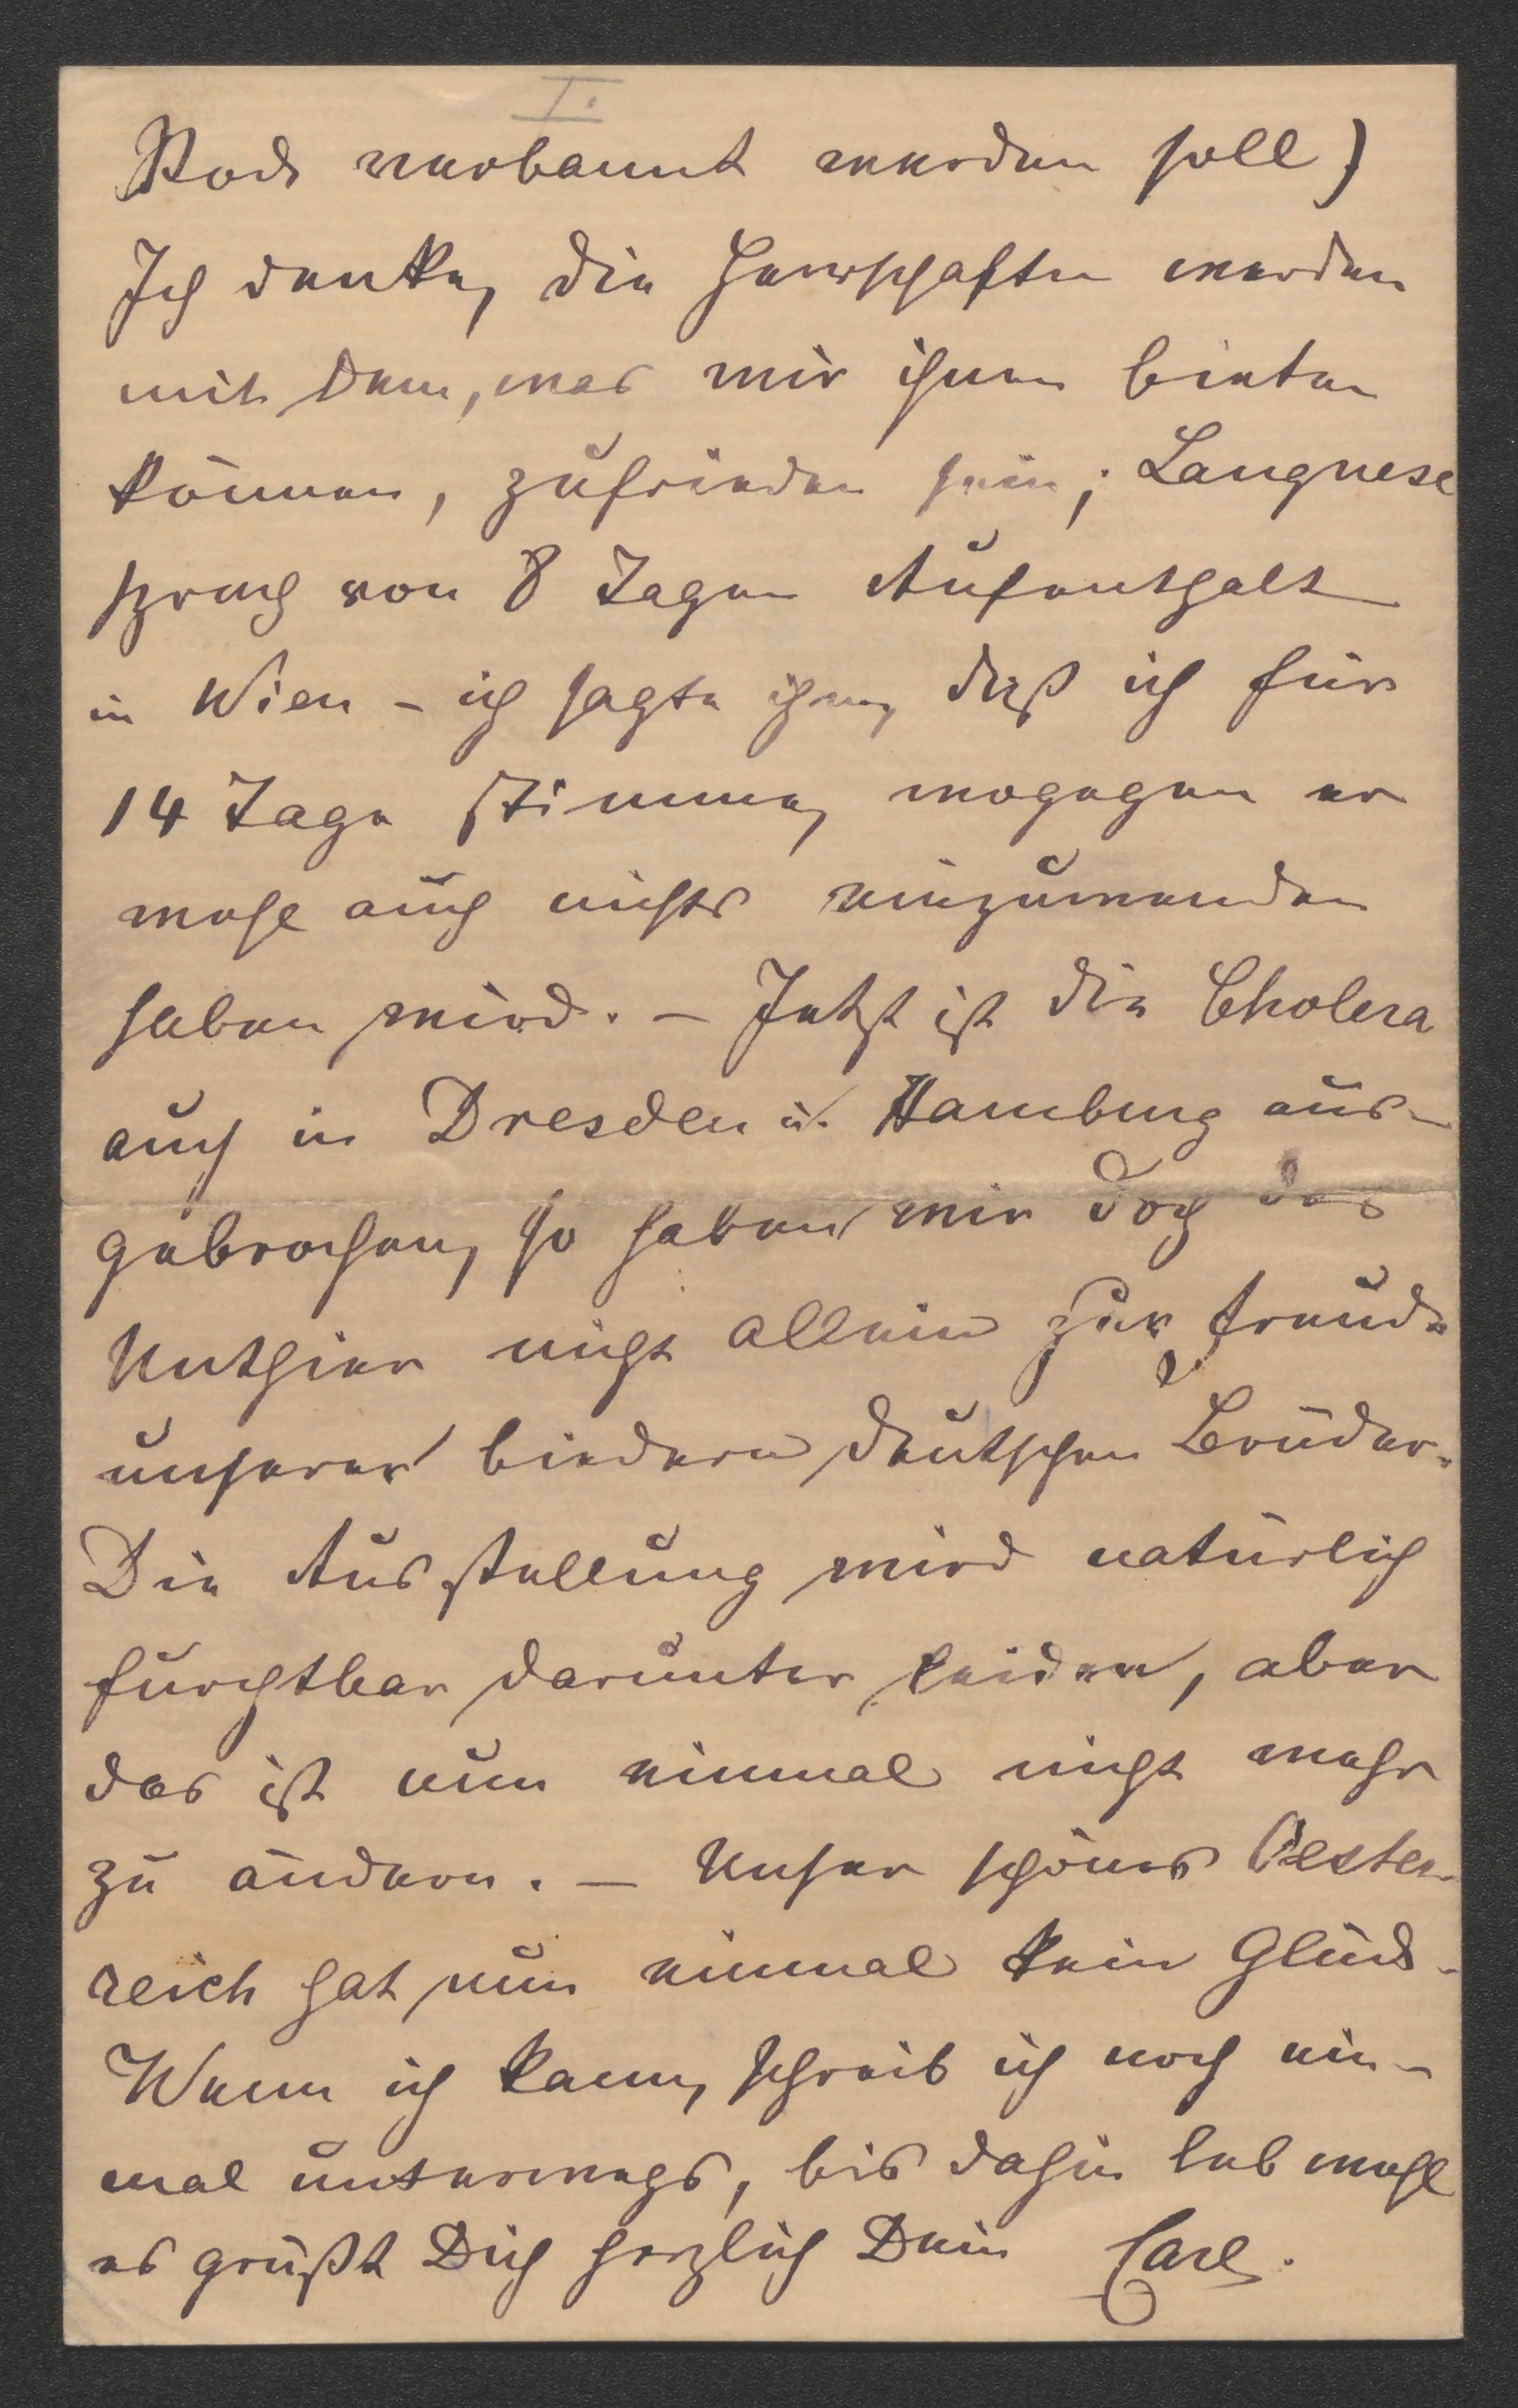 I.
Rock verbannt werden soll)
Ich denke, die Herrschaften werden
mit dem, was wir ihnen bieten
können, zufrieden sein; Langnese
sprach von 8 Tagen Aufenthalt
in Wien – ich sagte ihm, daß ich für
14 Tage stimme, wogegen er
wohl auch nichts einzuwenden
haben wird. – Jetzt ist die Cholera
auch in Dresden u. Hamburg aus-
gebrochen, so haben wir doch das
nicht allein zur Freude
unserer biedern deutschen Brüder.
Die Ausstellung wird natürlich
furchtbar darunter leiden, aber
das ist nun einmal nicht mehr
zu ändern. – Unser schönes Oester-
reich hat nun einmal kein Glück.
Wenn ich kann, schreib ich noch ein-
mal unterwegs, bis dahin leb wohl
es grüßt Dich herzlich Dein Carl.